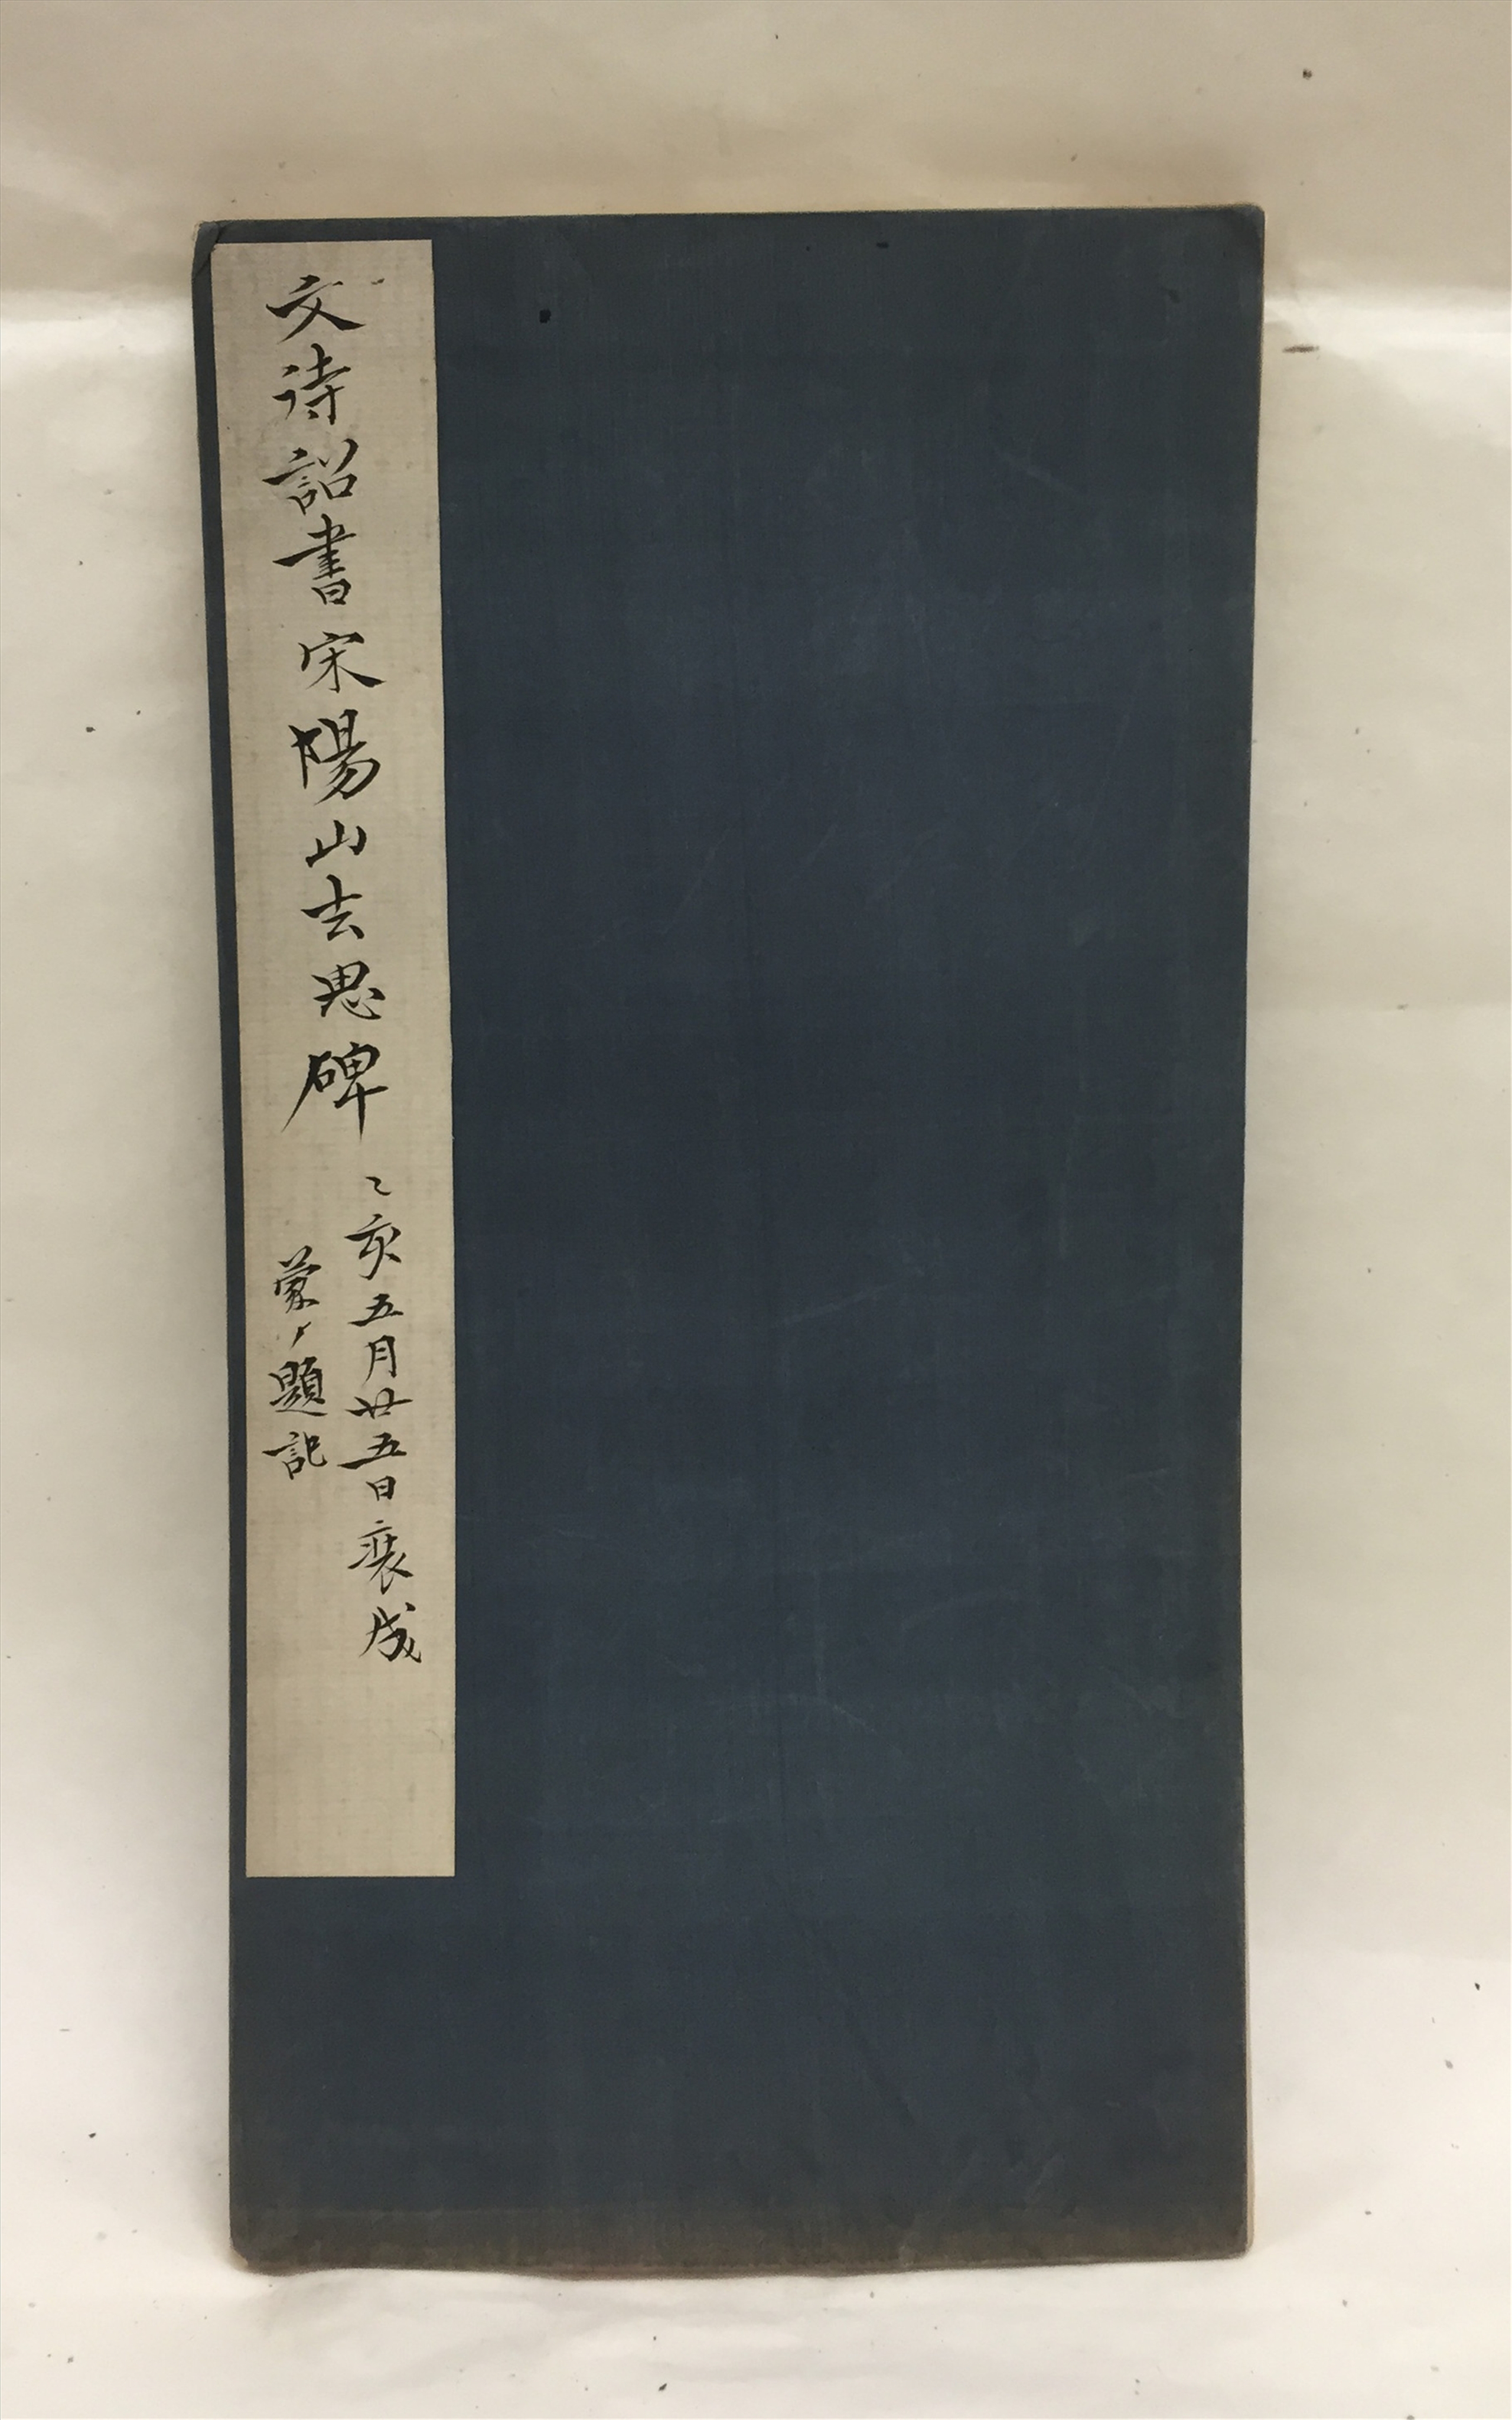 文待詔書宋陽山去思碑
乙亥五月廿五日裝成
題記